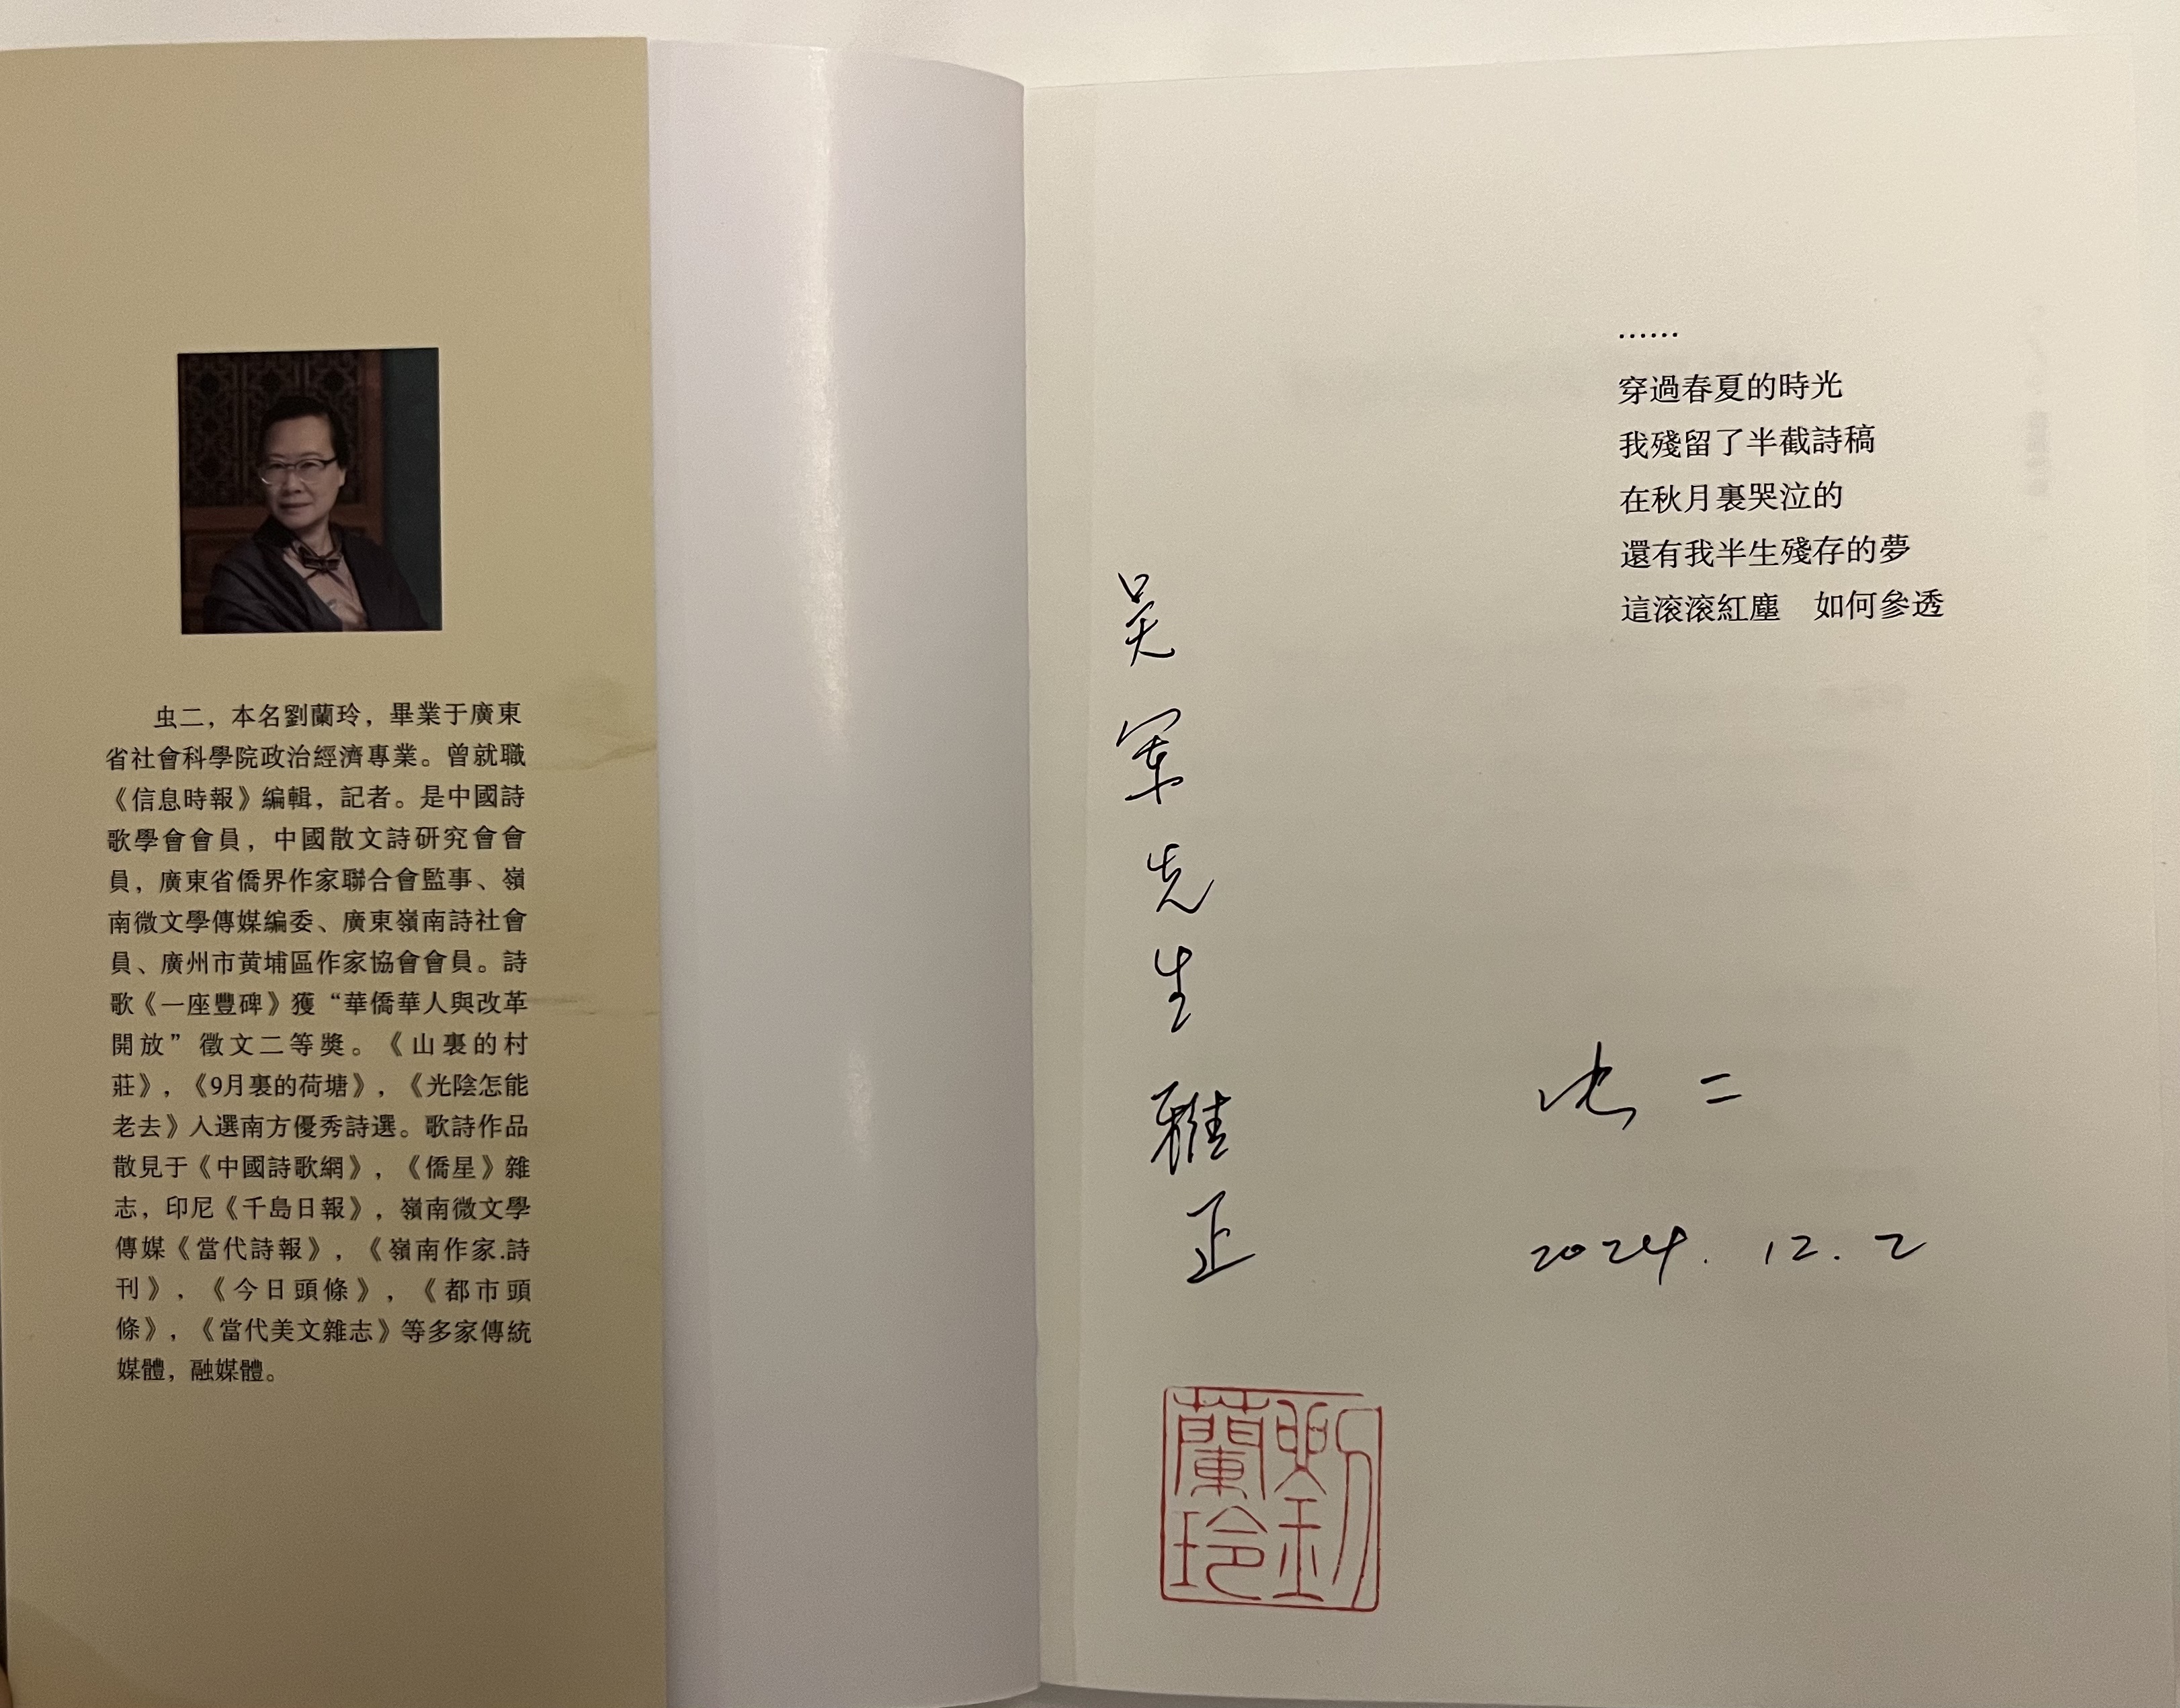 虫二，本名劉蘭玲，畢業于廣東
省社會科學院政治經濟專業。曾就職
《信息時報》編輯，記者。是中國詩
歌學會會員，中國散文詩研究會會
員，廣東省僑界作家聯合會監事、嶺
南微文學傳媒編委、廣東嶺南詩社會
員、廣州市黄埔區作家協會會員。詩
歌《一座豐碑》獲“華僑華人與改革
開放”徵文二等獎。《山裏的村
莊》，《9月裏的荷塘》，《光陰怎能
老去》入選南方優秀詩選。歌詩作品
散見于《中國詩歌網》，《僑星》雜
志，印尼《千島日報》，嶺南微文學
傳媒《當代詩報》，《嶺南作家.詩
刊》，《今日頭條》，《都市頭
條》，《當代美文雜志》等多家傳統
媒體，融媒體。
……
穿過春夏的時光
我殘留了半截詩稿
在秋月裏哭泣的
還有我半生殘存的夢
這滚滚紅塵　如何參透
吴軍先生雅正
虫二
2024. 12. 2
劉蘭玲